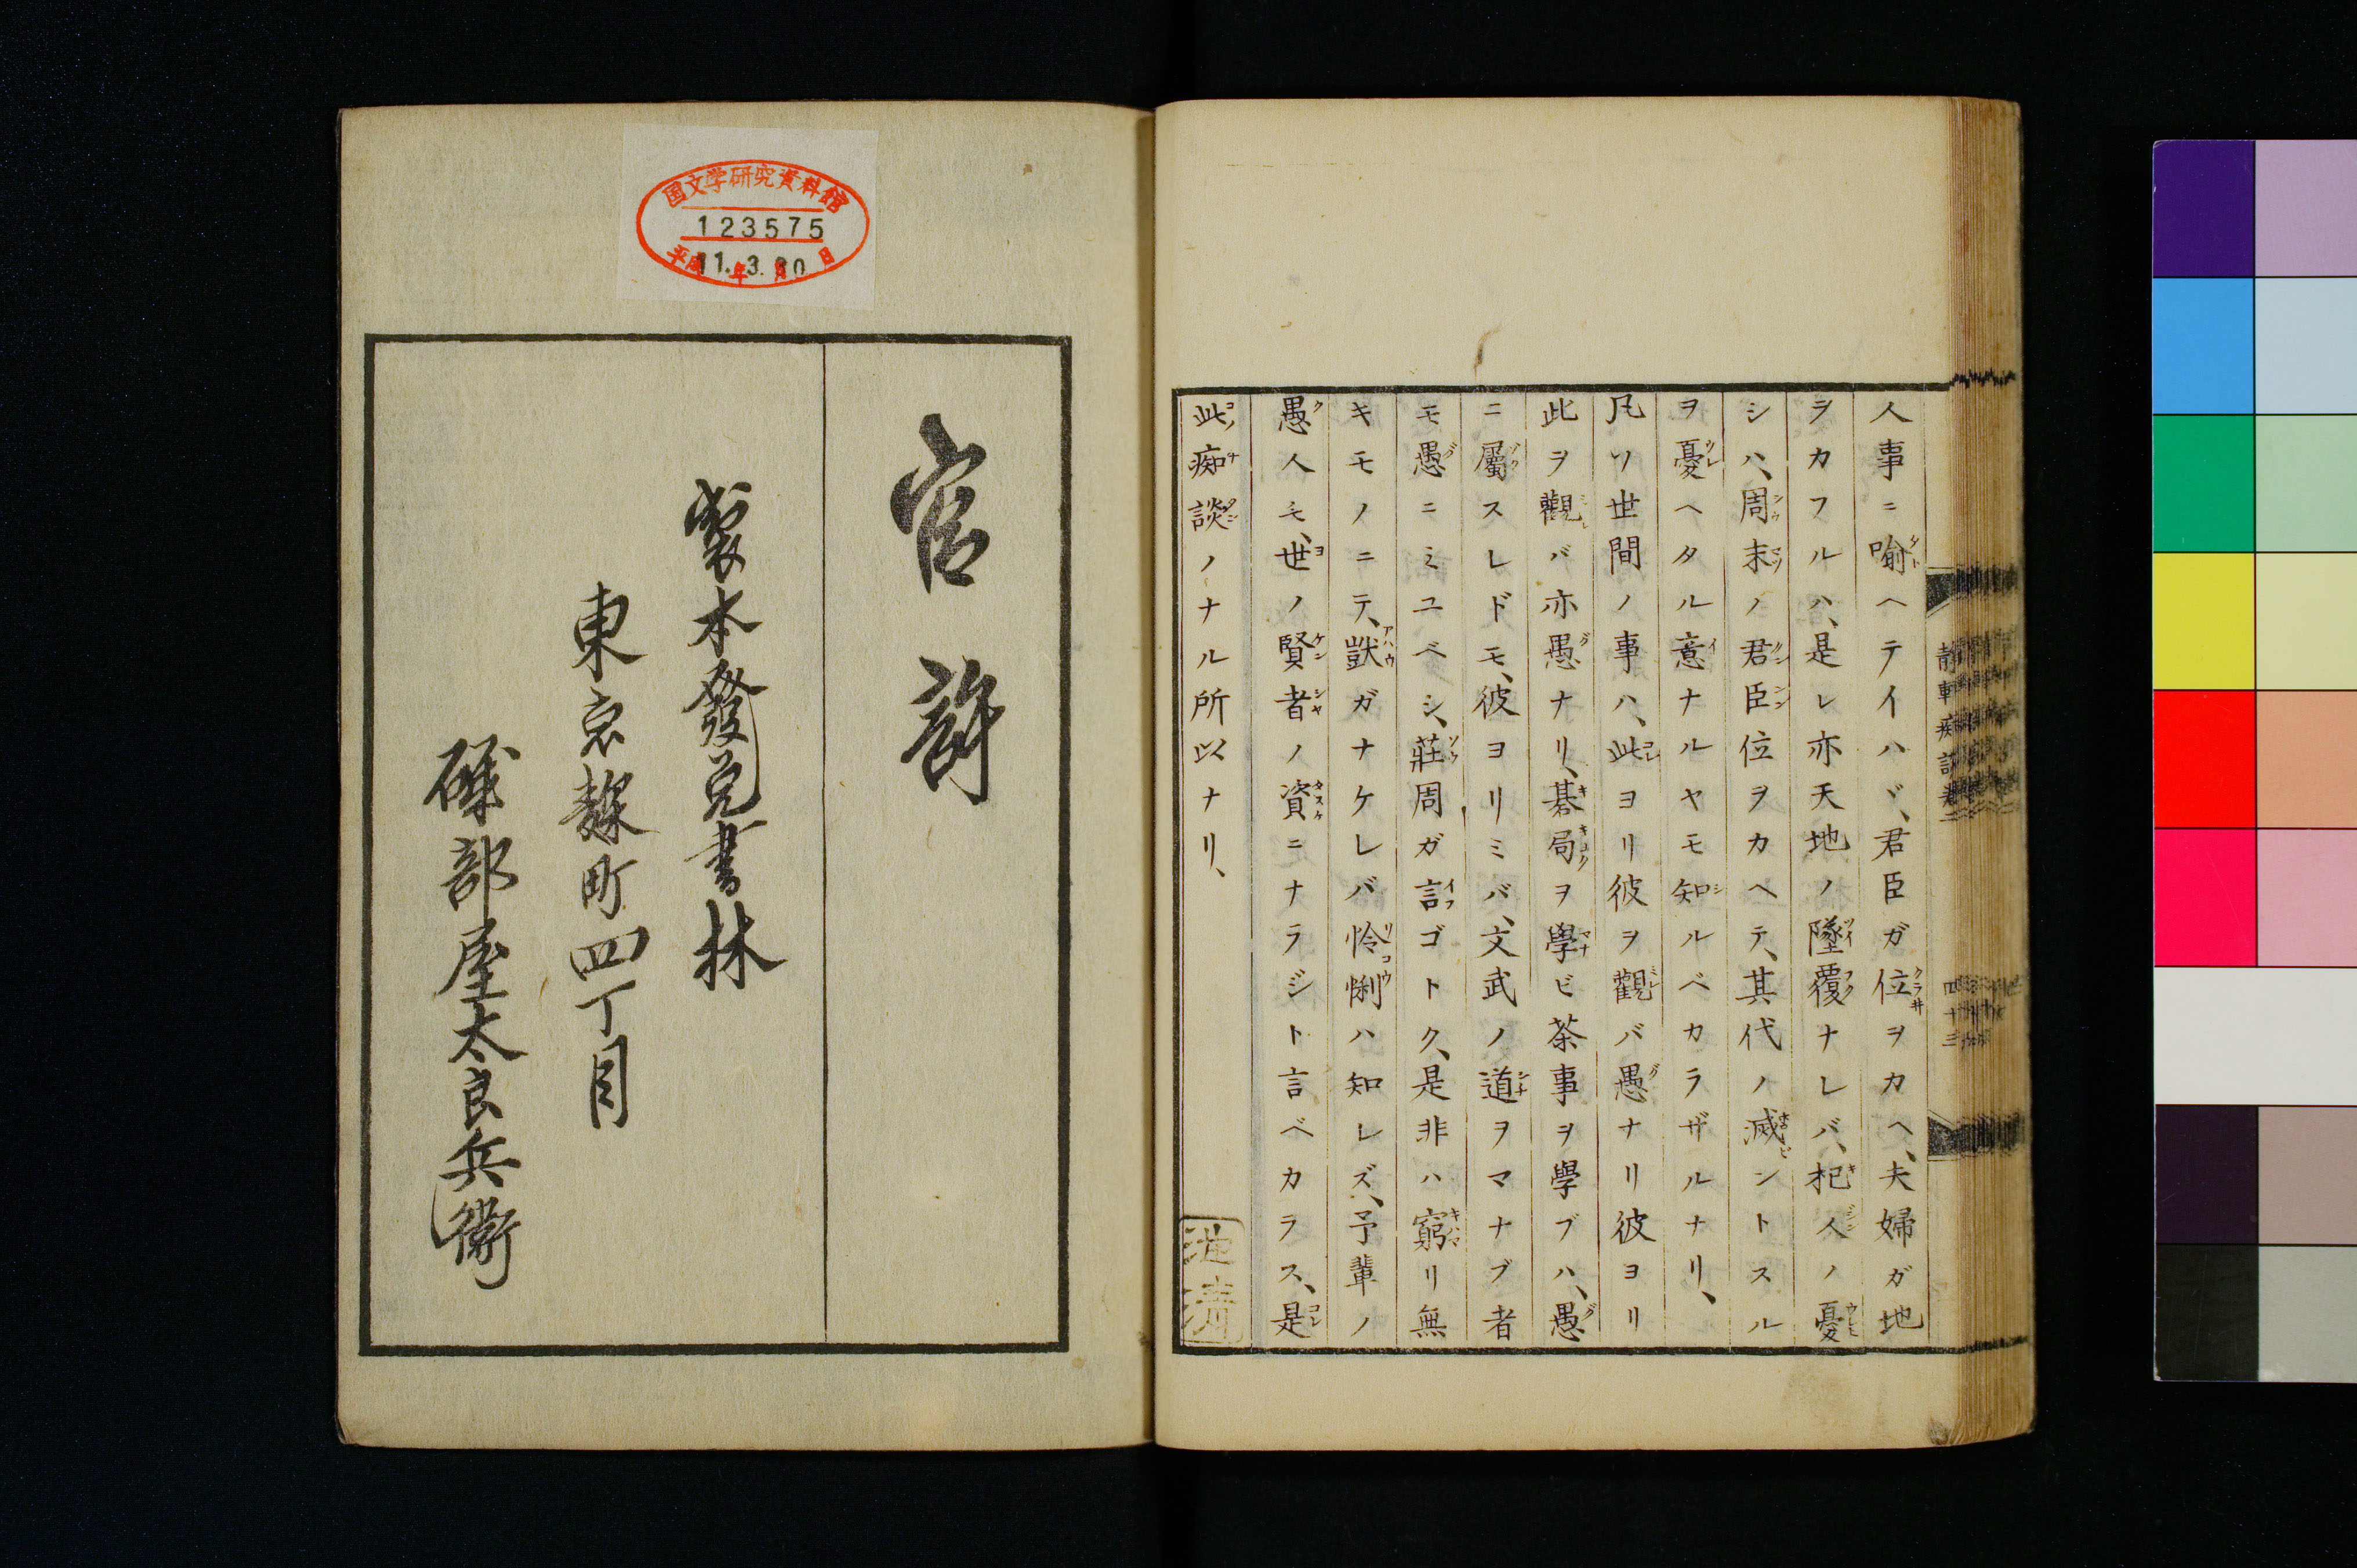 人事ニ喩ヘテイハヾ、君臣ガ位ヲカヘ、夫婦ガ地
ヲカフルハ、是レ亦天地ノ墜覆ナレバ、杞人ノ憂
シハ、周末ノ君臣位ヲカヘテ、其代ノ滅ントスル
ヲ憂ヘタル意ナルヤモ知ルベカラザルナリ、
凡ソ世間ノ事ハ、此ヨリ彼ヲ觀バ愚ナリ彼ヨリ
此ヲ觀バ亦愚ナリ、碁局ヲ學ビ茶事ヲ學ブハ、愚
ニ屬スレドモ、彼ヨリミバ、文武ノ道ヲマナブ者
モ愚ニミユベシ、莊周ガ言ゴトク、是非ハ窮リ無
キモノニテ、獃ガナケレバ怜悧ハ知レズ、予輩ノ
愚人モ、世ノ賢者ノ資ニナラジト言ベカラス、是
此痴談ノナル所以ナリ、
四十三
国文学研究資料館
123575
平成 11年 3.月 30日
官許
製本發兌書林
東京麹町四丁目
礒部屋太良兵衛